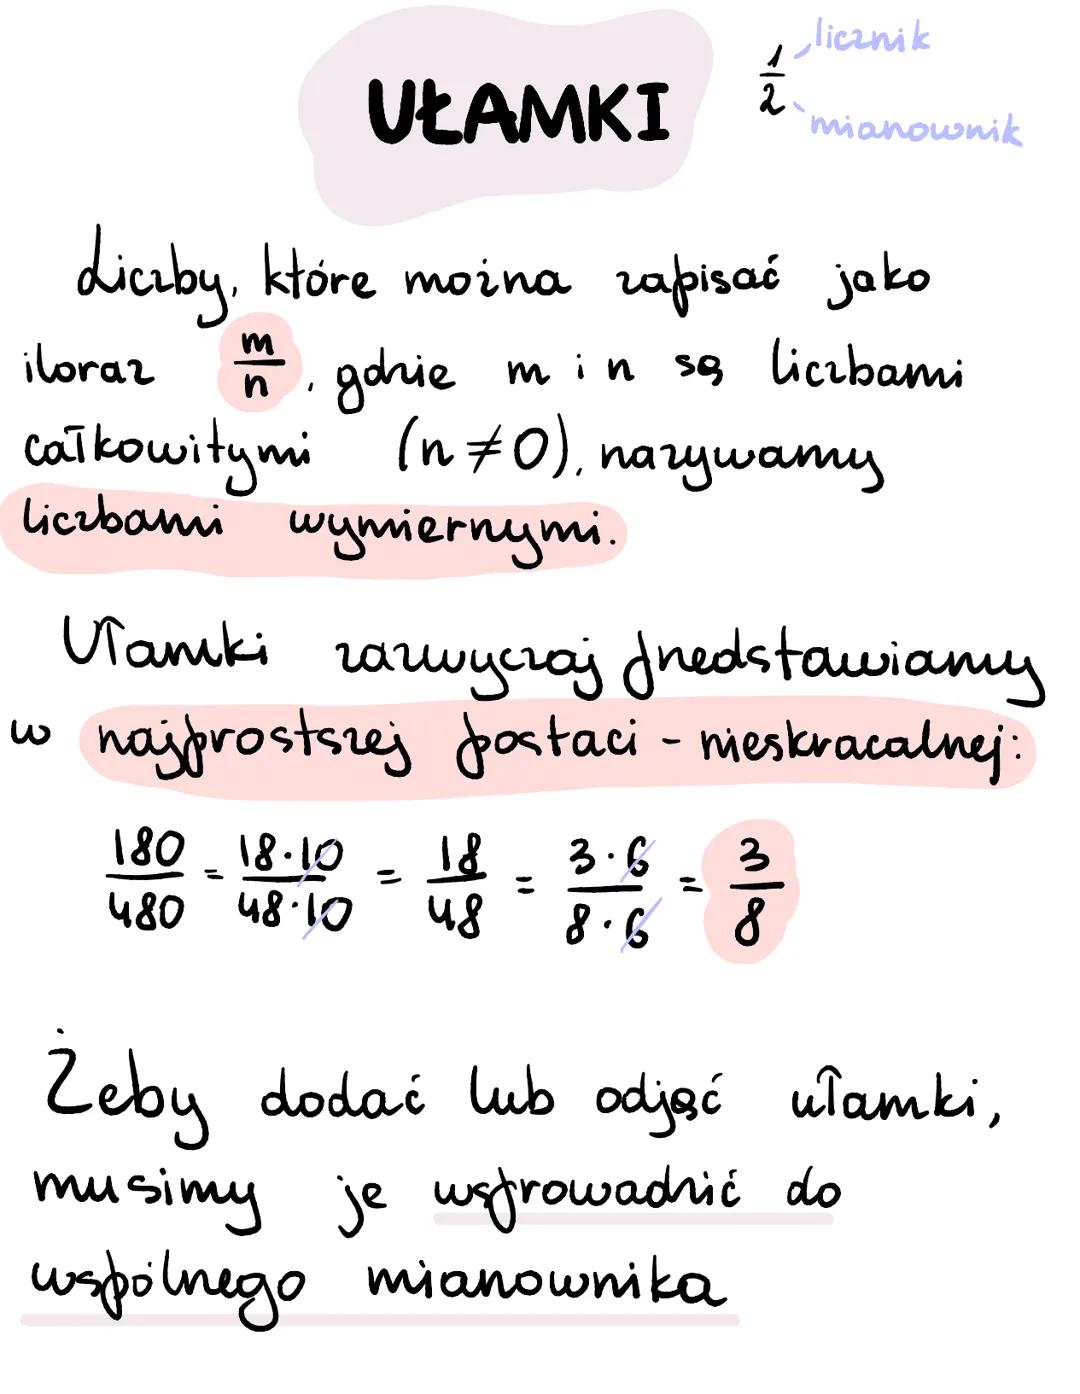 UŁAMKI
1/2
licznik
mianownik
Liczby, które można zapisać jako
iloraz m/n, gdzie m i n są liczbami
całkowitymi (n≠0), nazywamy
liczbami wymiernymi.
Ułamki zazwyczaj przedstawiamy
w najprostszej postaci - nieskracalnej:
180/480 = 18·10/48·10 = 18/48 = 3·6/8·6 = 3/8
Żeby dodać lub odjąć ułamki,
musimy je wsprowadzić do
wspólnego mianownika